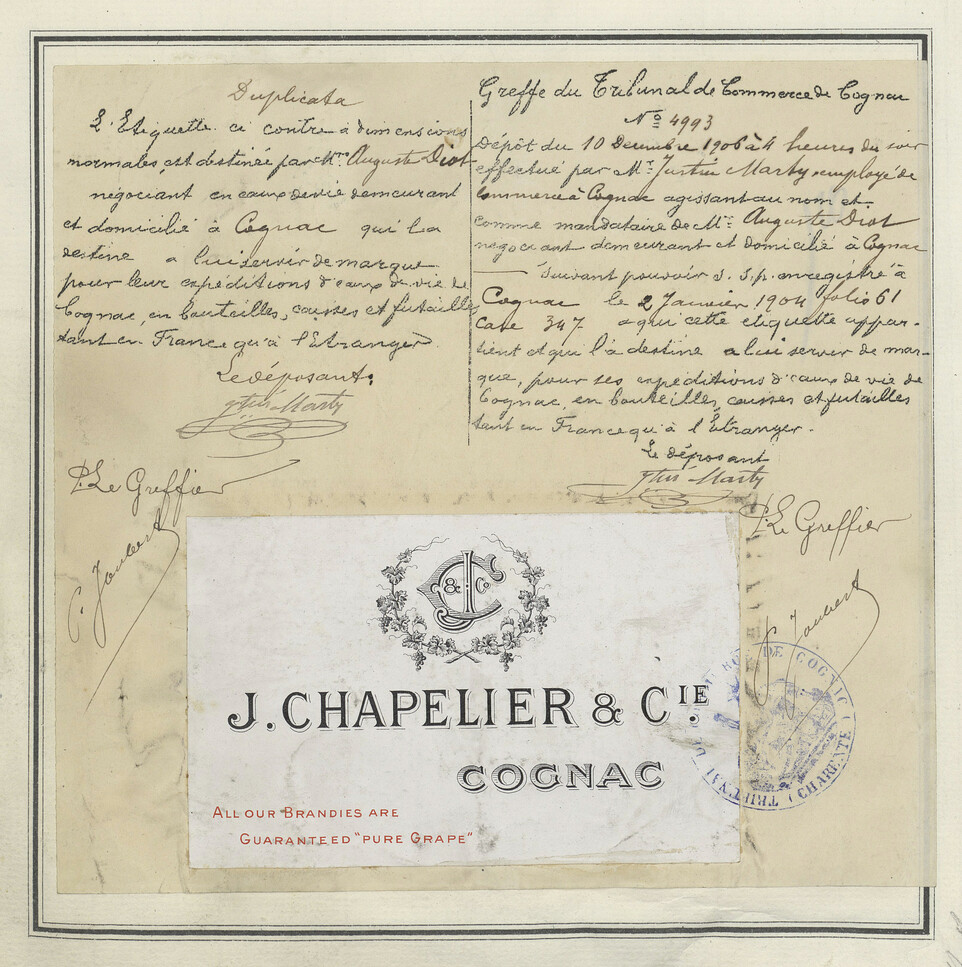 Duplicata
L'Etiquette ci contre à dimensions
normales, est destinée par Mr Auguste Diot
négociant en eaux de vie demeurant
et domicilié à Cognac qui la
destine a lui servir de marque
pour leur expéditions d'eaux de vie de
Cognac, en bouteilles, caisses et futailles
tant en France qu'à l'Etranger.
Le déposant.
Jtin Marty
P. Le Greffier
Joubert
Greffe du Tribunal de Commerce de Cognac
No 4993
Dépôt du 10 Decembre 1906 à 4 heures du soir
effectué par Mr Justin Marty employé de
commerce à Cognac agissant au nom et
comme mandataire de Mr Auguste Diot
négociant demeurant et domicilié à Cognac
Suivant pouvoir s. s. p. enregistré à
Cognac le 2 Janvier 1904 folio 61
Case 347 a qui cette etiquette appar-
tient et qui l'a destine a lui server de mar-
que, pour ses expéditions d'eaux de vie de
Cognac, en bouteilles, caisses et futailles
tant en France qu'à l'Etranger.
Le déposant
Jtin Marty
P. Le Greffier
Joubert
J C & Co
J. CHAPELIER & CIE.
COGNAC
ALL OUR BRANDIES ARE
GUARANTEED "PURE GRAPE"
DE COGNAC (CHARENTE)